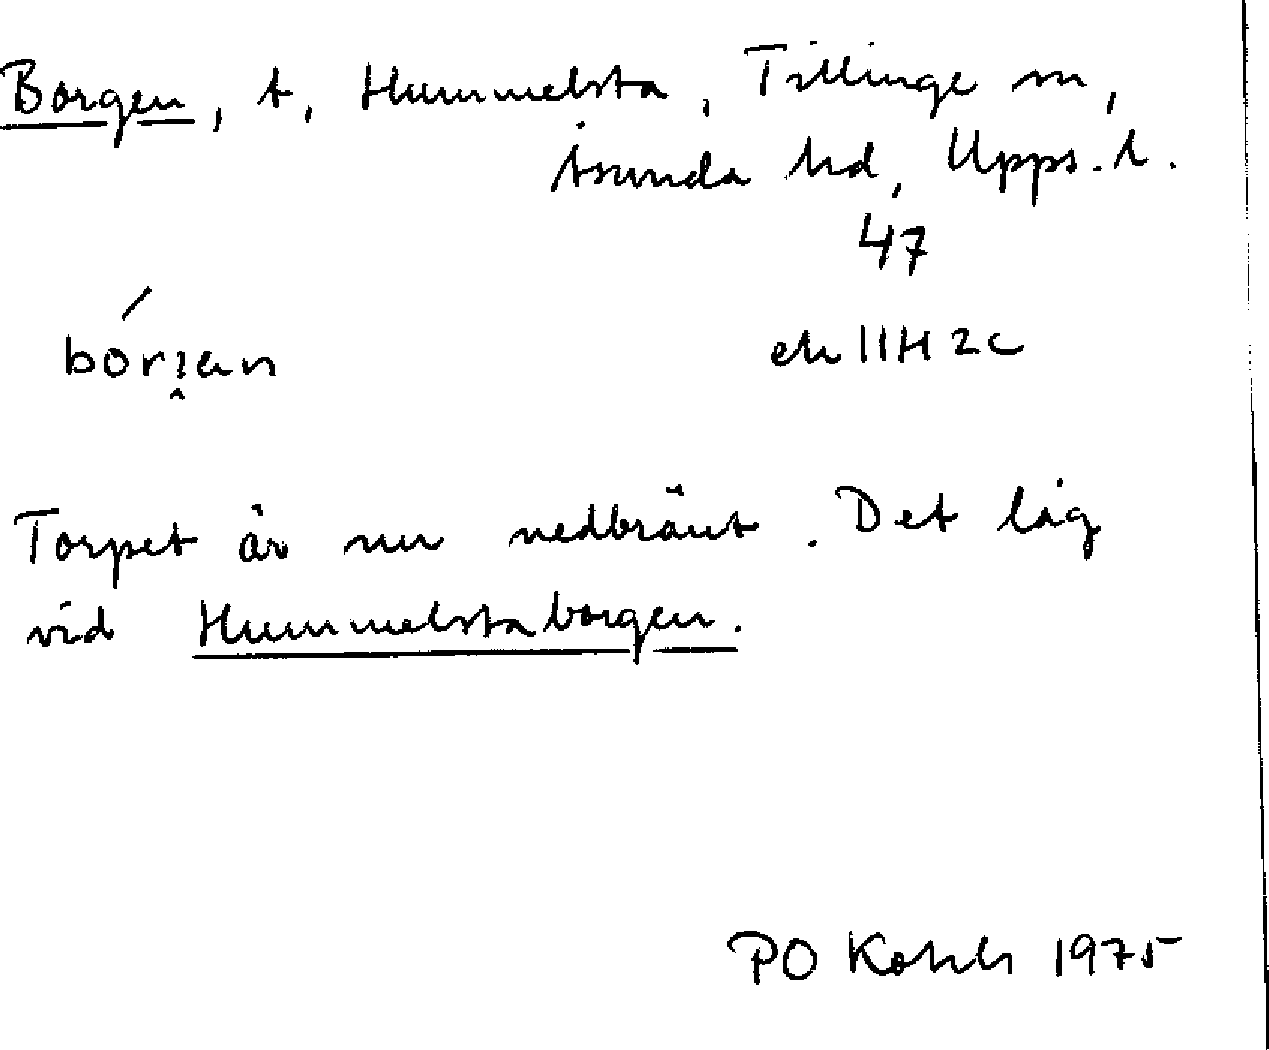 Borgen, t, Hummelsta, Tillinge sn,
Åsunda hd, Upps. l.
47
ek 11H2c
Torpet är nu nedbränt. Det låg
vid Hummelstaborgen.
PO 1975